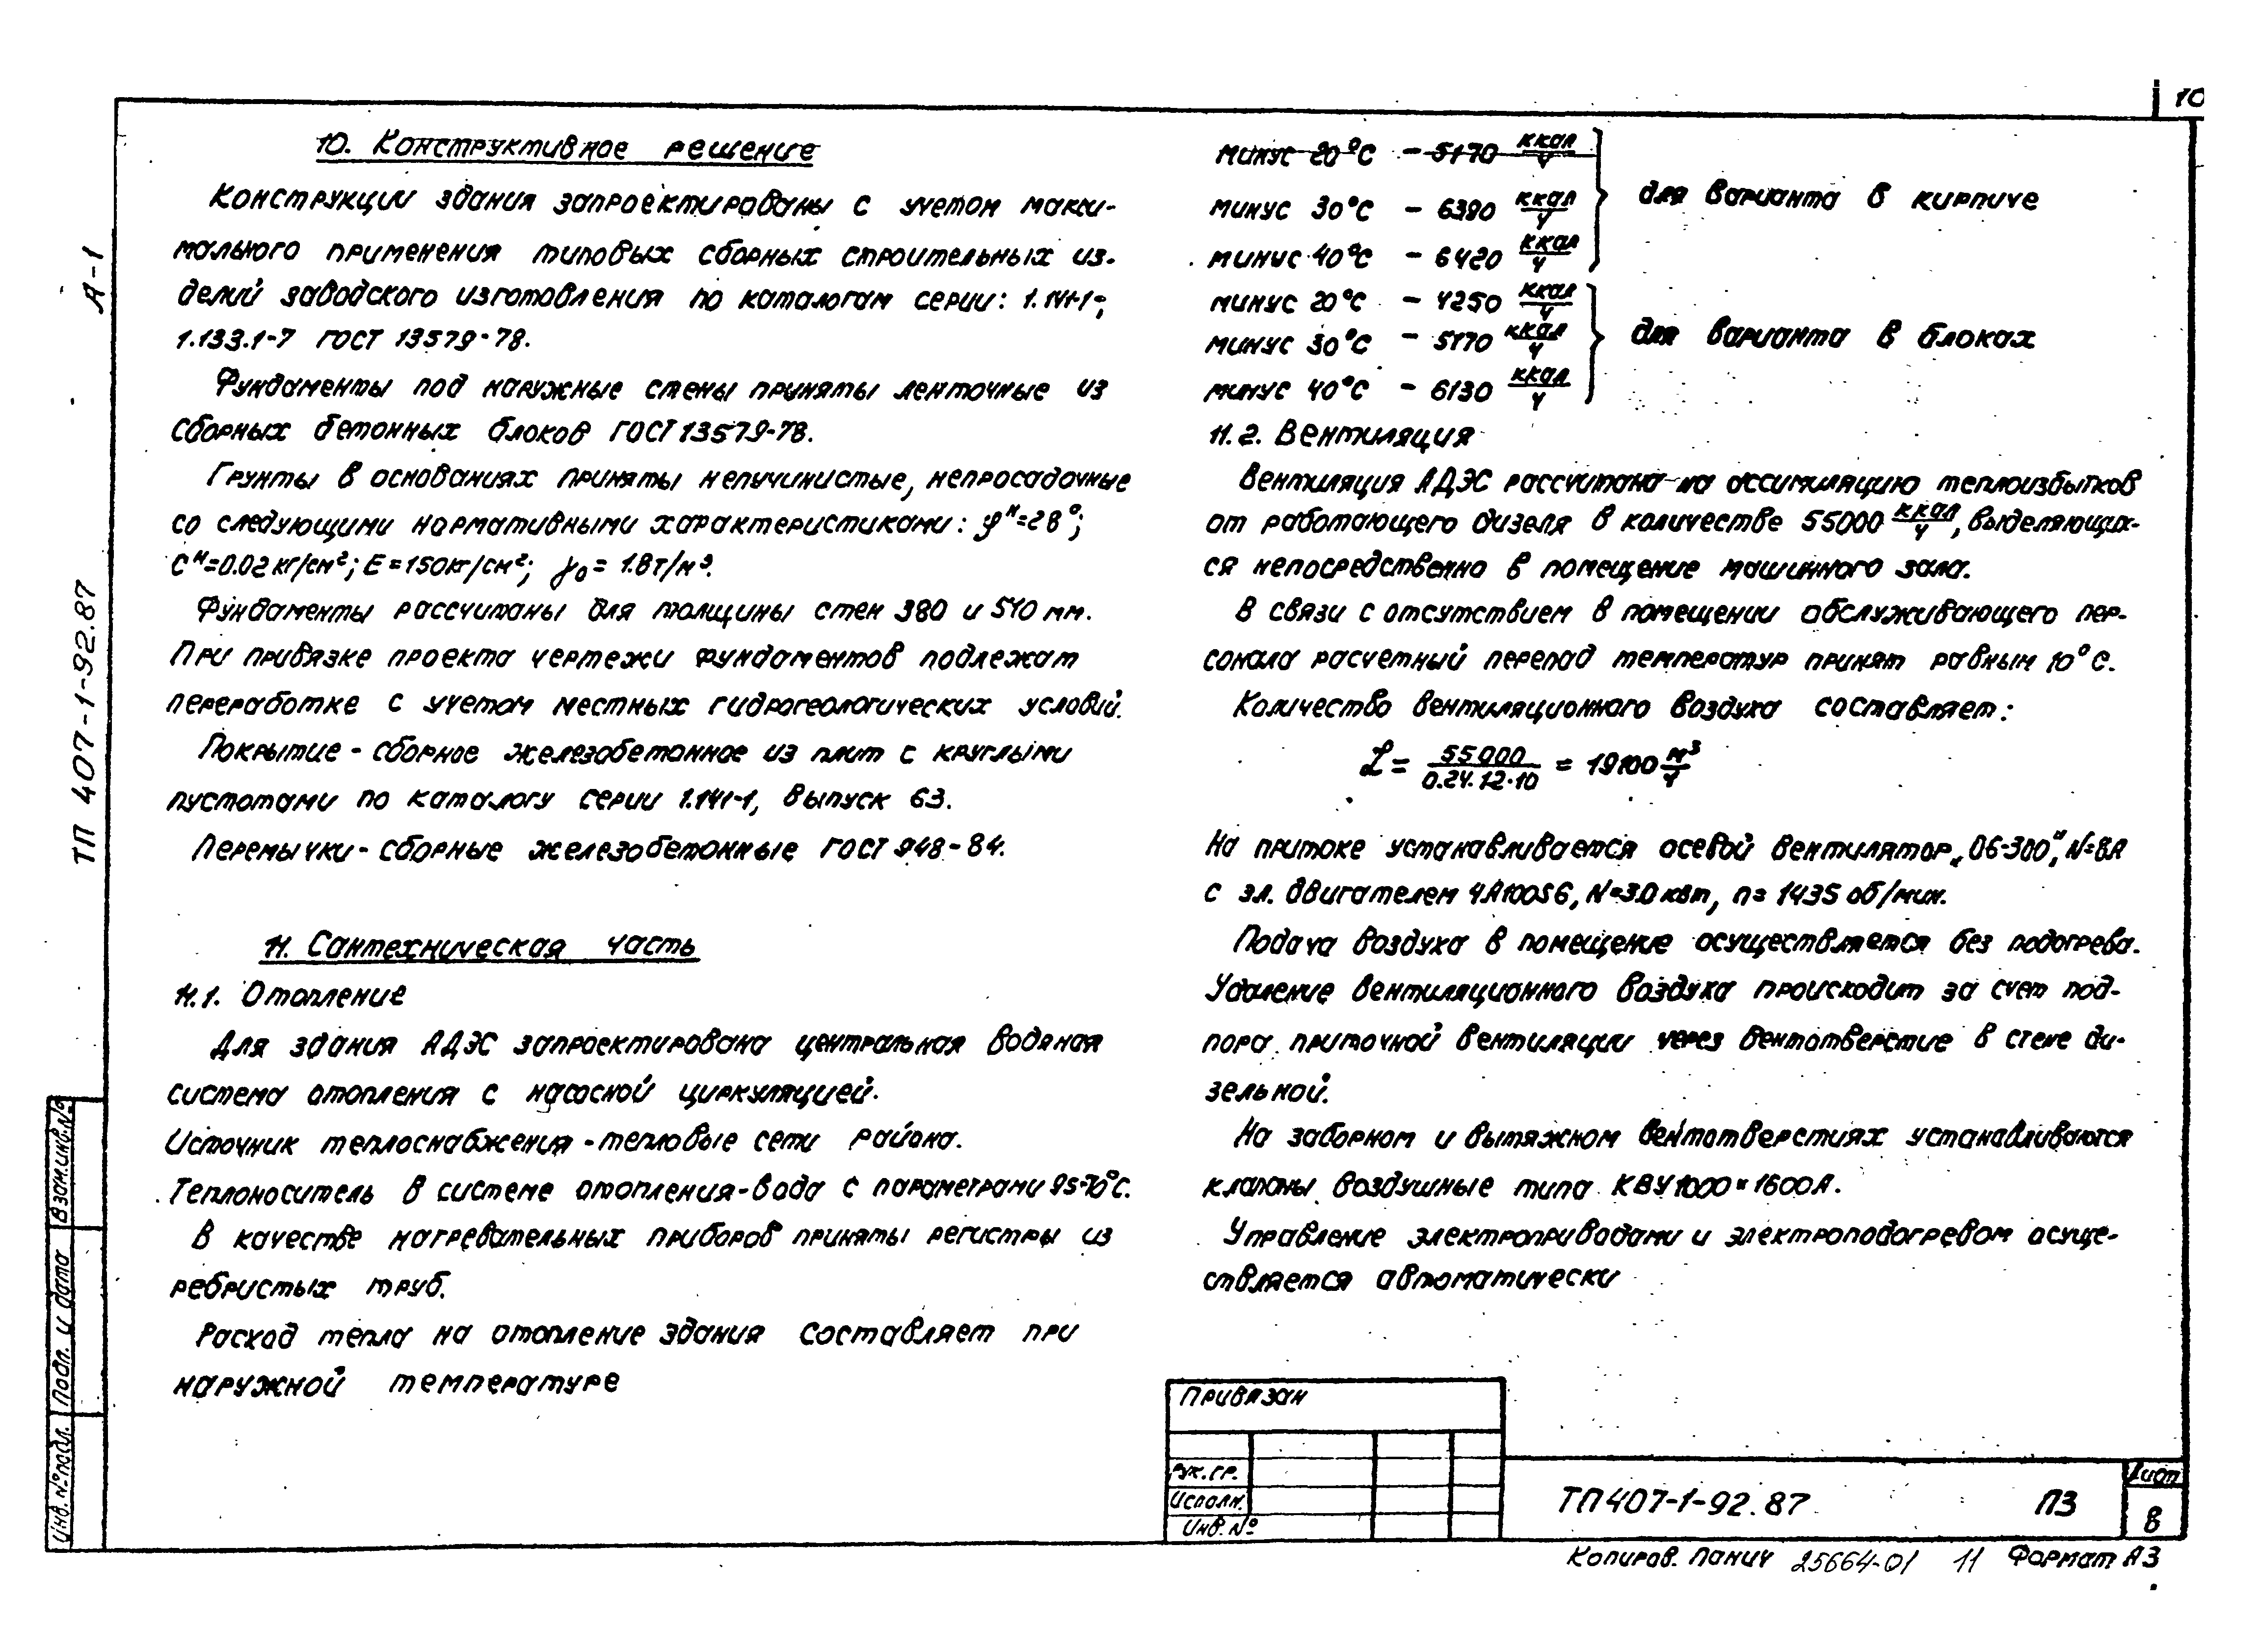 10
10. Конструктивное решение
Конструкции здания запроектированы с учетом макси-
мального применения типовых сборных строительных из-
делий заводского изготовления по каталогам серии: 1.141-1;
1.133.1-7 ГОСТ 13579-78.
Фундаменты под наружные стены приняты ленточные из
сборных бетонных блоков ГОСТ 13579-78.
Грунты в основаниях приняты непучинистые, непросадочные
со следующими нормативными характеристиками: φᴴ=28°;
Cᴴ=0.02 кг/см²; E=150кг/см²; γ₀= 1.8т/м³.
Фундаменты рассчитаны для толщины стен 380 и 510 мм.
При привязке проекта чертежи фундаментов подлежат
переработке с учетом местных гидрогеологических условий.
Покрытие - сборное железобетонное из плит с круглыми
пустотами по каталогу серии 1.141-1, выпуск 63.
Перемычки - сборные железобетонные ГОСТ 948-84.
11. Сантехническая часть
11.1. Отопление
Для здания АДЭС запроектирована центральная водяная
система отопления с насосной циркуляцией.
Источник теплоснабжения - тепловые сети района.
Теплоноситель в системе отопления - вода с параметрами 95-70°С.
В качестве нагревательных приборов приняты регистры из
ребристых труб.
Расход тепла на отопление здания составляет при
наружной температуре
минус 20°С - 5170 ккал/ч
минус 30°С - 6390 ккал/ч для варианта в кирпиче
минус 40°С - 6420 ккал/ч
минус 20°С - 4250 ккал/ч
минус 30°С - 5170 ккал/ч для варианта в блоках
минус 40°С - 6130 ккал/ч
11.2. Вентиляция
Вентиляция АДЭС рассчитана на ассимиляцию теплоизбытков
от работающего дизеля в количестве 55000 ккал/ч, выделяющих-
ся непосредственно в помещение машинного зала.
В связи с отсутствием в помещении обслуживающего пер-
сонала расчетный перепад температур принят равным 10°С.
Количество вентиляционного воздуха составляет:
L = 55000/0.24·1.2·10 = 19100 м³/ч
На притоке устанавливается осевой вентилятор „06-300", N=8А
с эл. двигателем 4А100S6, N=3.0 квт, n= 1435 об/мин.
Подача воздуха в помещение осуществляется без подогрева.
Удаление вентиляционного воздуха происходит за счет под-
пора приточной вентиляции через вентотверстие в стене ди-
зельной.
На заборном и вытяжном вентотверстиях устанавливаются
клапаны воздушные типа КВУ 1000×1600А.
Управление электроприводами и электроподогревом осуще-
ствляется автоматически
А-1
ТП 407-1-92.87
Взам.инв.№
Подп. и дата
Инв. № подл.
Привязан
Рук. гр.
Исполн.
Инв. №
ТП407-1-92.87 ПЗ
Лист
8
Копиров. Панич 25664-01 11 Формат А3